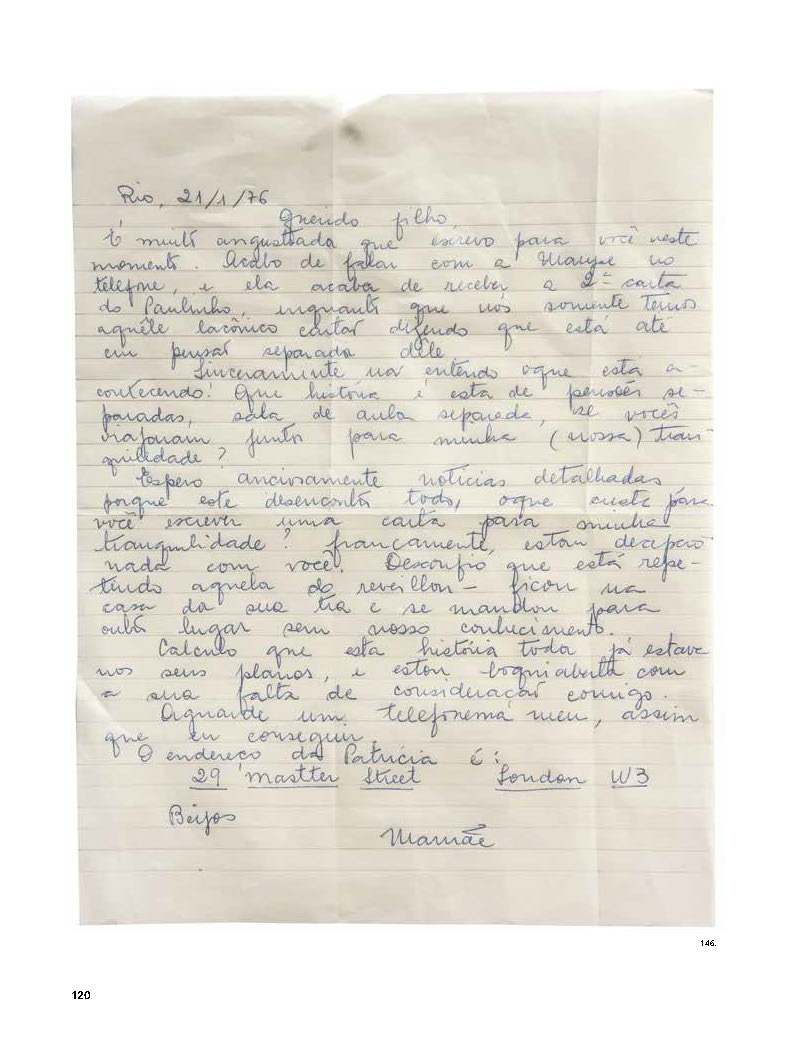 Rio, 21/1/76
Querido filho
É muito angustiada que escrevo para você neste
momento. Acabo de falar com a Maryse no
telefone, e ela acaba de receber a 2ª carta
do Paulinho, enquanto que nós somente temos
aquêle lacônico cartão dizendo que está até
em pensão separada dêle
Sinceramente não entendo oque esta a-
contecendo! Que história é esta de pensões se-
paradas, sala de aula separada, se vocês
viajaram juntos para minha (nossa) tran-
quilidade?
Espero anciosamente notícias detalhadas
porque este desencontro todo, oque custa para
você escrever uma carta para minha
tranquilidade? francamente, estou decepcio-
nada com você. Desconfio que está repe-
tindo aquela do reveillon - ficou na
casa da sua tia e se mandou para
outro lugar sem nosso conhecimento.
Calculo que esta história toda já estava
nos seus planos, e estou boquiaberta com
a sua falta de consideração comigo.
Aguarde um telefonema meu, assim
que eu conseguir.
O endereço da Patrícia é:
29 mastter Street London W3
Beijos
Mamãe
146.
120